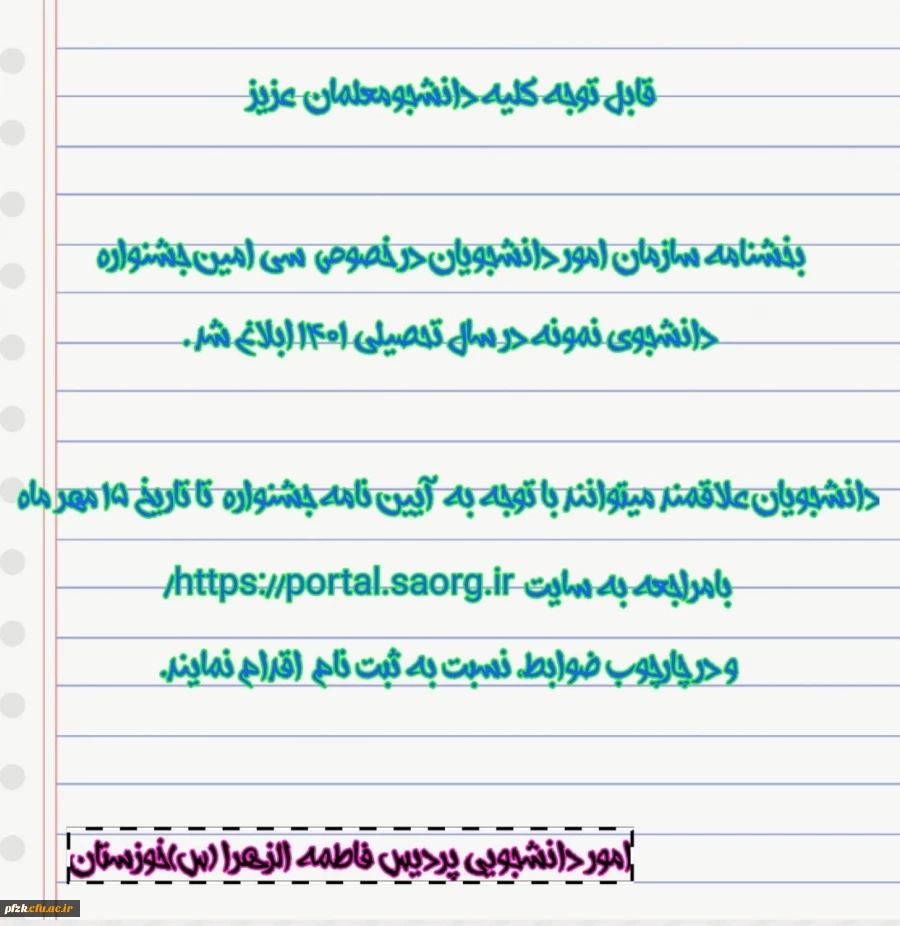 قابل توجه کلیه دانشجومعلمان عزیز
بخشنامه سازمان امور دانشجویان در خصوص سی امین جشنواره
دانشجوی نمونه در سال تحصیلی ۱۴۰۱ ابلاغ شد.
دانشجویان علاقمند میتوانند با توجه به آیین نامه جشنواره تا تاریخ ۱۵ مهر ماه
بامراجعه به سایت https://portal.saorg.ir/
و در چارچوب ضوابط، نسبت به ثبت نام اقدام نمایند.
امور دانشجویی پردیس فاطمه الزهرا (س)خوزستان
pfzk.cfu.ac.ir